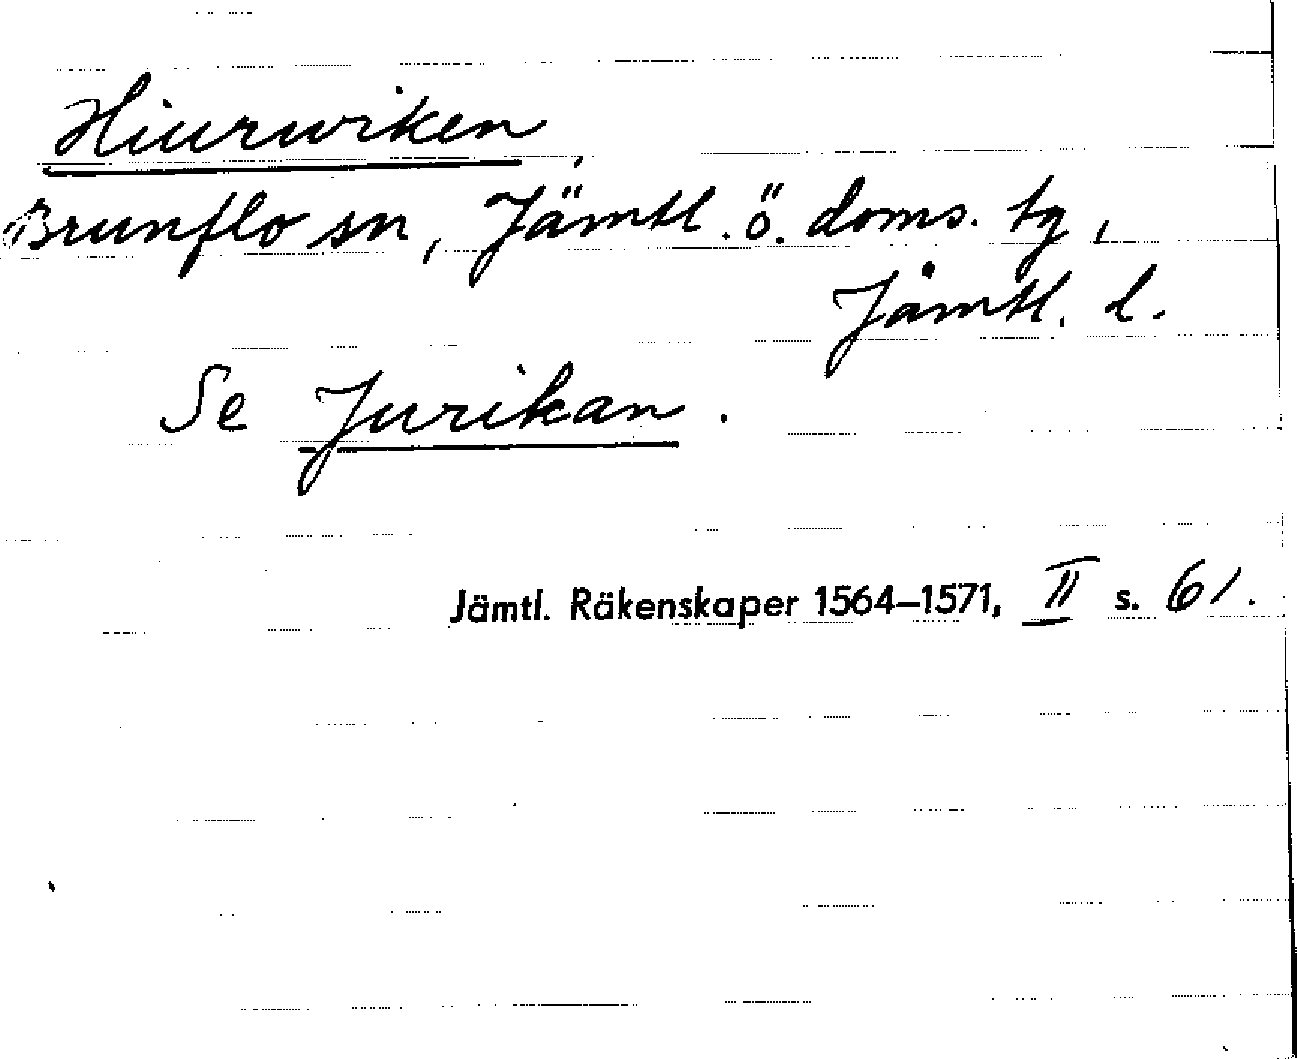 Hiurwiken,
Brunflo sn, Jämtl. ö. doms. tg,
Jämtl. l.
Se Jurikan.
Jämtl. Räkenskaper 1564–1571, II s. 61.